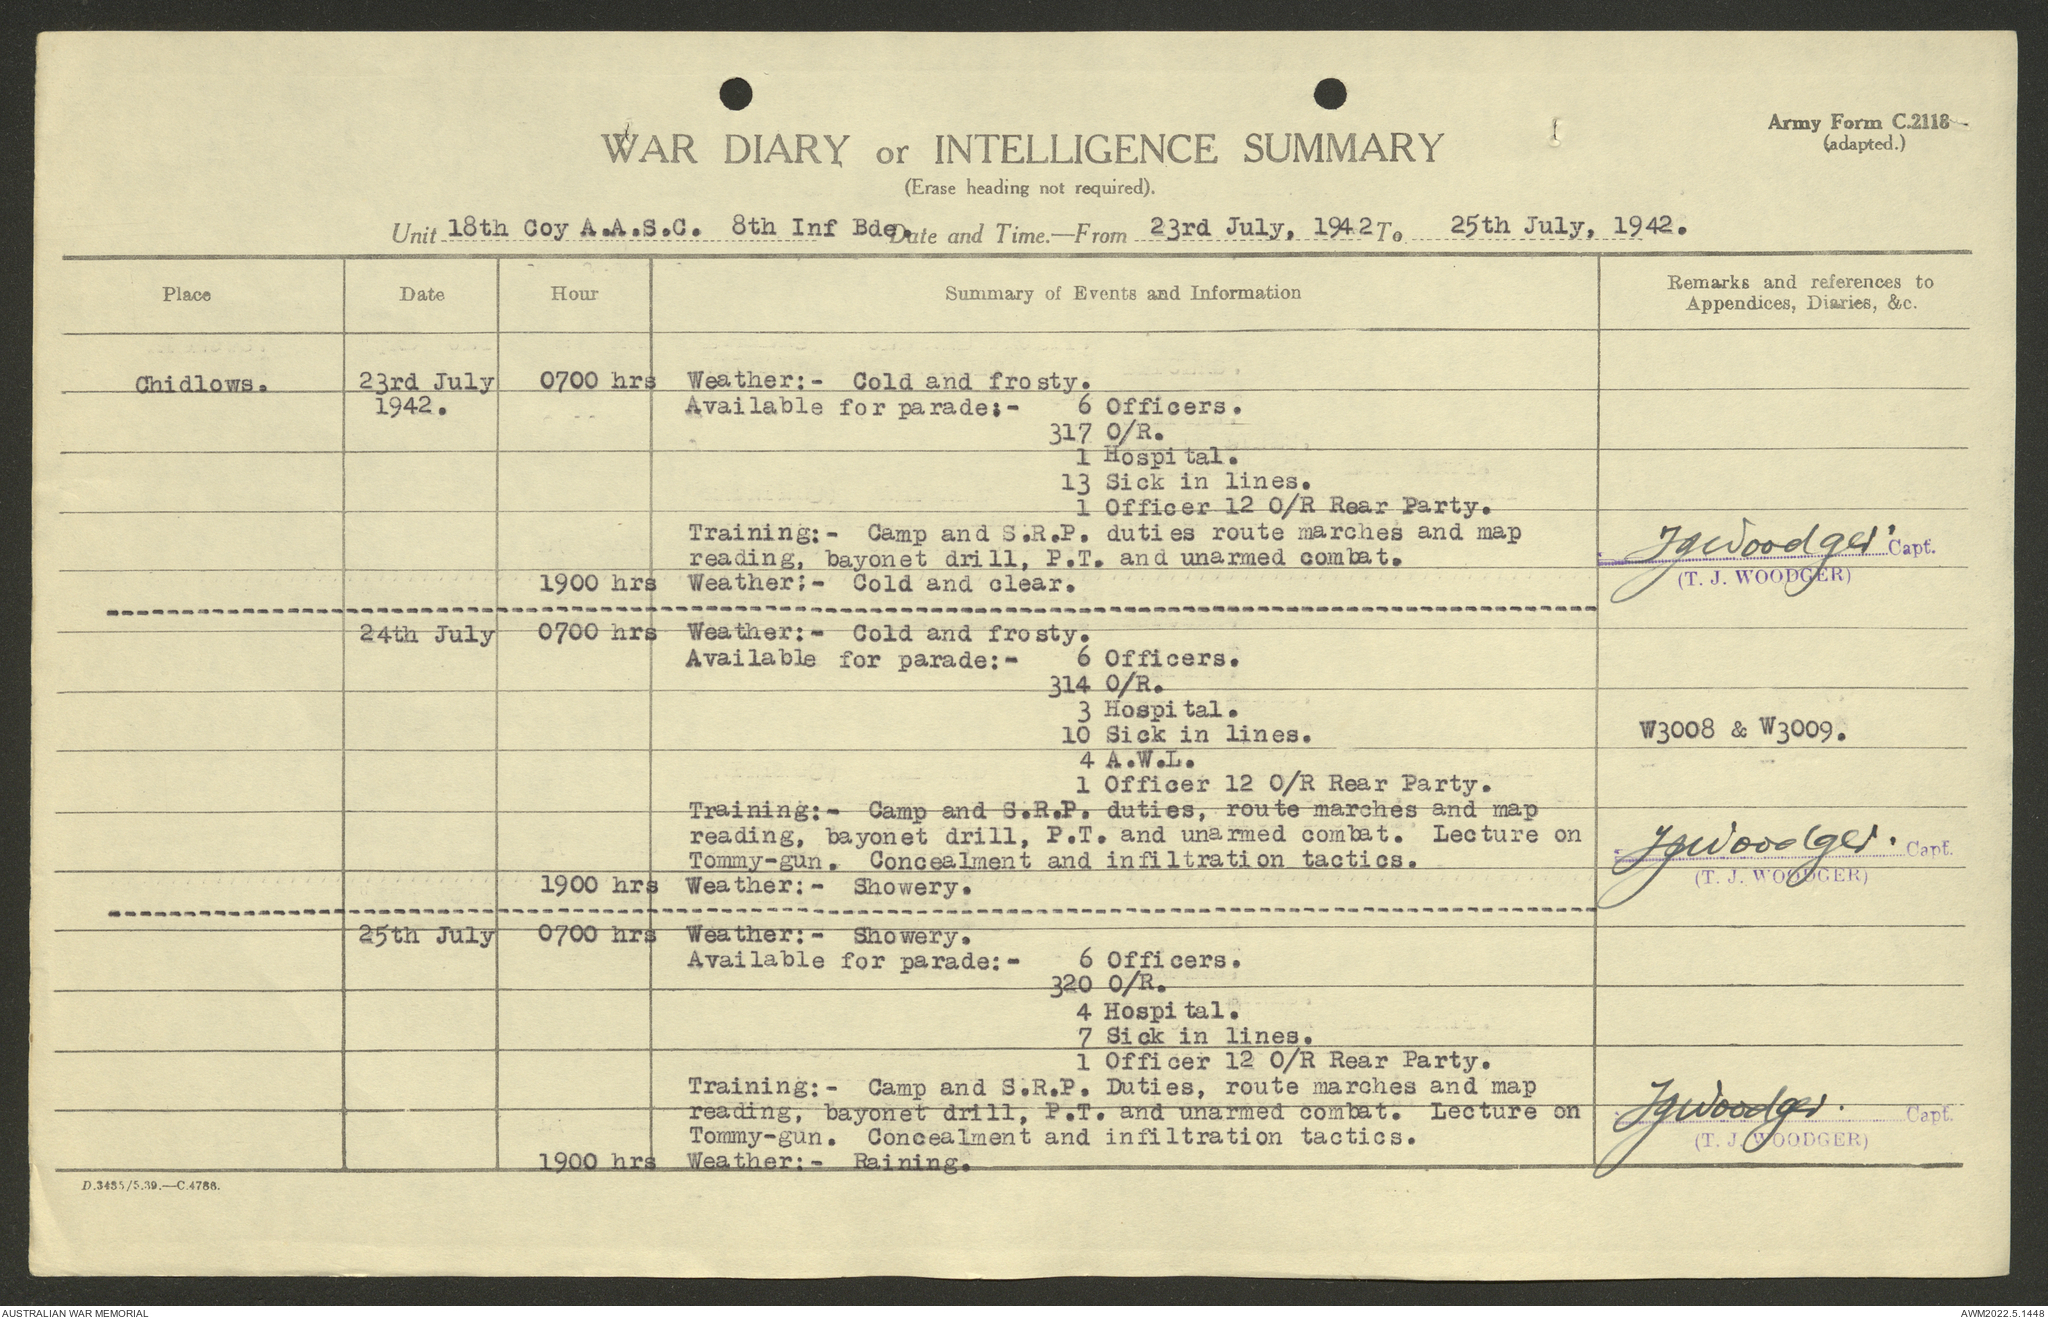 Army Form C.2118
(adapted.)
WAR DIARY or INTELLIGENCE SUMMARY
(Erase heading not required).
Unit 18th Coy A.A.S.C. 8th Inf Bde. Date and Time.—From 23rd July, 1942 To 25th July, 1942.
Place Date Hour Summary of Events and Information Remarks and references to
Appendices, Diaries, &c.
Chidlows. 23rd July 0700 hrs Weather:- Cold and frosty.
1942. Available for parade:- 6 Officers.
317 O/R.
1 Hospital.
13 Sick in lines.
1 Officer 12 O/R Rear Party.
Training:- Camp and S.R.P. duties route marches and map
reading, bayonet drill, P.T. and unarmed combat. TJWoodger Capt.
1900 hrs Weather:- Cold and clear. (T. J. WOODGER)
24th July 0700 hrs Weather:- Cold and frosty.
Available for parade:- 6 Officers.
314 O/R.
3 Hospital.
10 Sick in lines. W3008 & W3009.
4 A.W.L.
1 Officer 12 O/R Rear Party.
Training:- Camp and S.R.P. duties, route marches and map
reading, bayonet drill, P.T. and unarmed combat. Lecture on
Tommy-gun. Concealment and infiltration tactics. TJWoodger. Capt.
1900 hrs Weather:- Showery. (T. J. WOODGER)
25th July 0700 hrs Weather:- Showery.
Available for parade:- 6 Officers.
320 O/R.
4 Hospital.
7 Sick in lines.
1 Officer 12 O/R Rear Party.
Training:- Camp and S.R.P. Duties, route marches and map
reading, bayonet drill, P.T. and unarmed combat. Lecture on TJWoodger. Capt.
Tommy-gun. Concealment and infiltration tactics. (T. J. WOODGER)
1900 hrs Weather:- Raining.
D.3435/5.39.—C.4786.
AUSTRALIAN WAR MEMORIAL AWM2022.5.1448